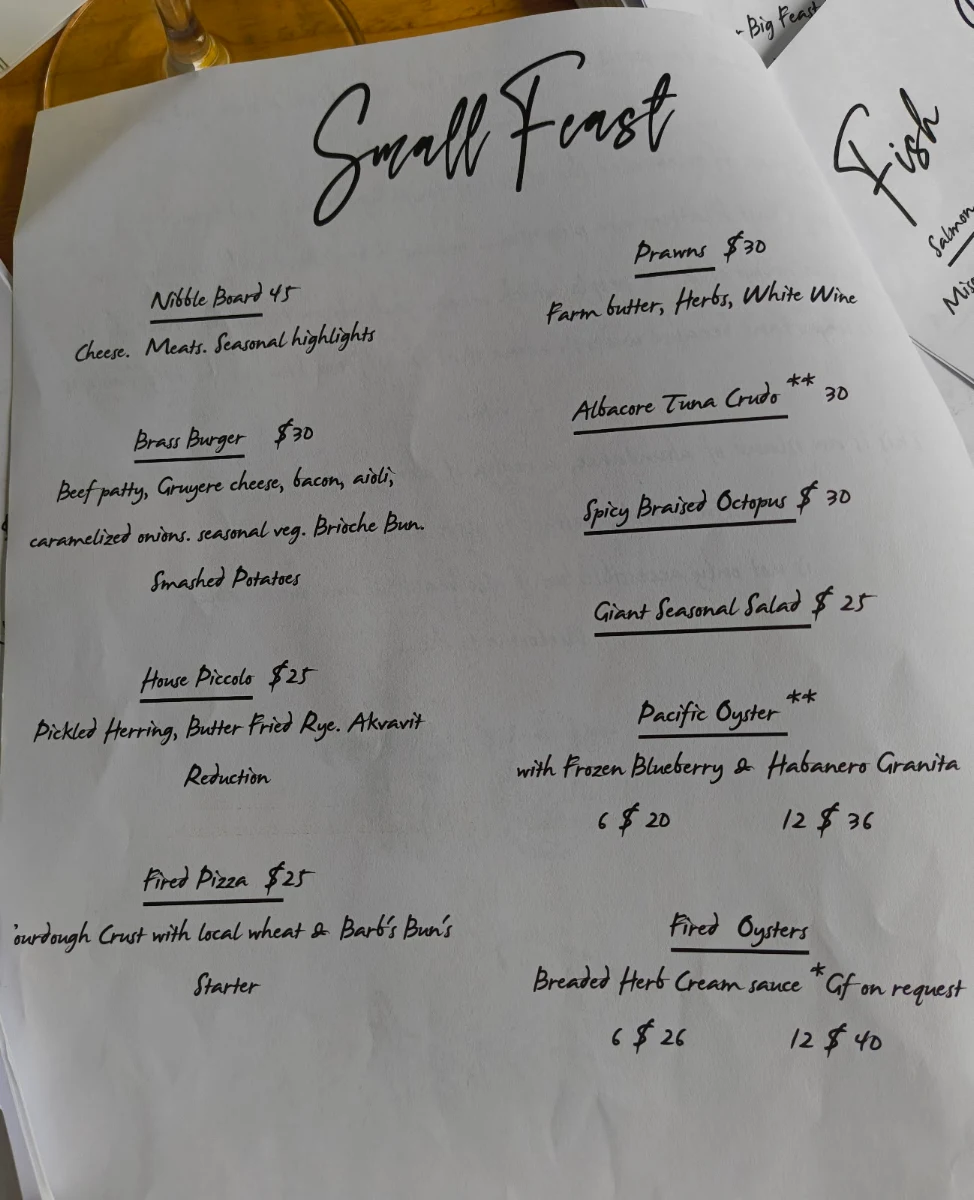 Small Feast
Nibble Board 45
Cheese. Meats. Seasonal highlights
Brass Burger $30
Beef patty, Gruyere cheese, bacon, aioli,
caramelized onions. seasonal veg. Brioche Bun.
Smashed Potatoes
House Piccolo $25
Pickled Herring, Butter Fried Rye. Akvavit
Reduction
Fired Pizza $25
'ourdough Crust with local wheat & Barb's Bun's
Starter
Prawns $30
Farm butter, Herbs, White Wine
Albacore Tuna Crudo ** 30
Spicy Braised Octopus $ 30
Giant Seasonal Salad $ 25
Pacific Oyster **
with Frozen Blueberry & Habanero Granita
6 $ 20 12 $ 36
Fired Oysters
Breaded Herb Cream sauce *Gf on request
6 $ 26 12 $ 40
- Big Feast
Fish
Salmon